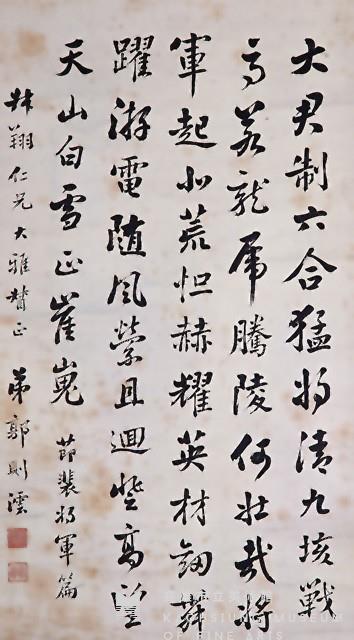 大君制六合猛將清九垓戰
馬若龍虎騰陵何壯哉將
軍起北荒怛赫耀英材劒舞
躍游電随風縈且迴登高望
天山白雪正崔嵬 節裴將軍篇
叔翔仁兄大雅詧正 弟郭則澐
高雄市立美術館
KAOHSIUNG MUSEUM
OF FINE ARTS